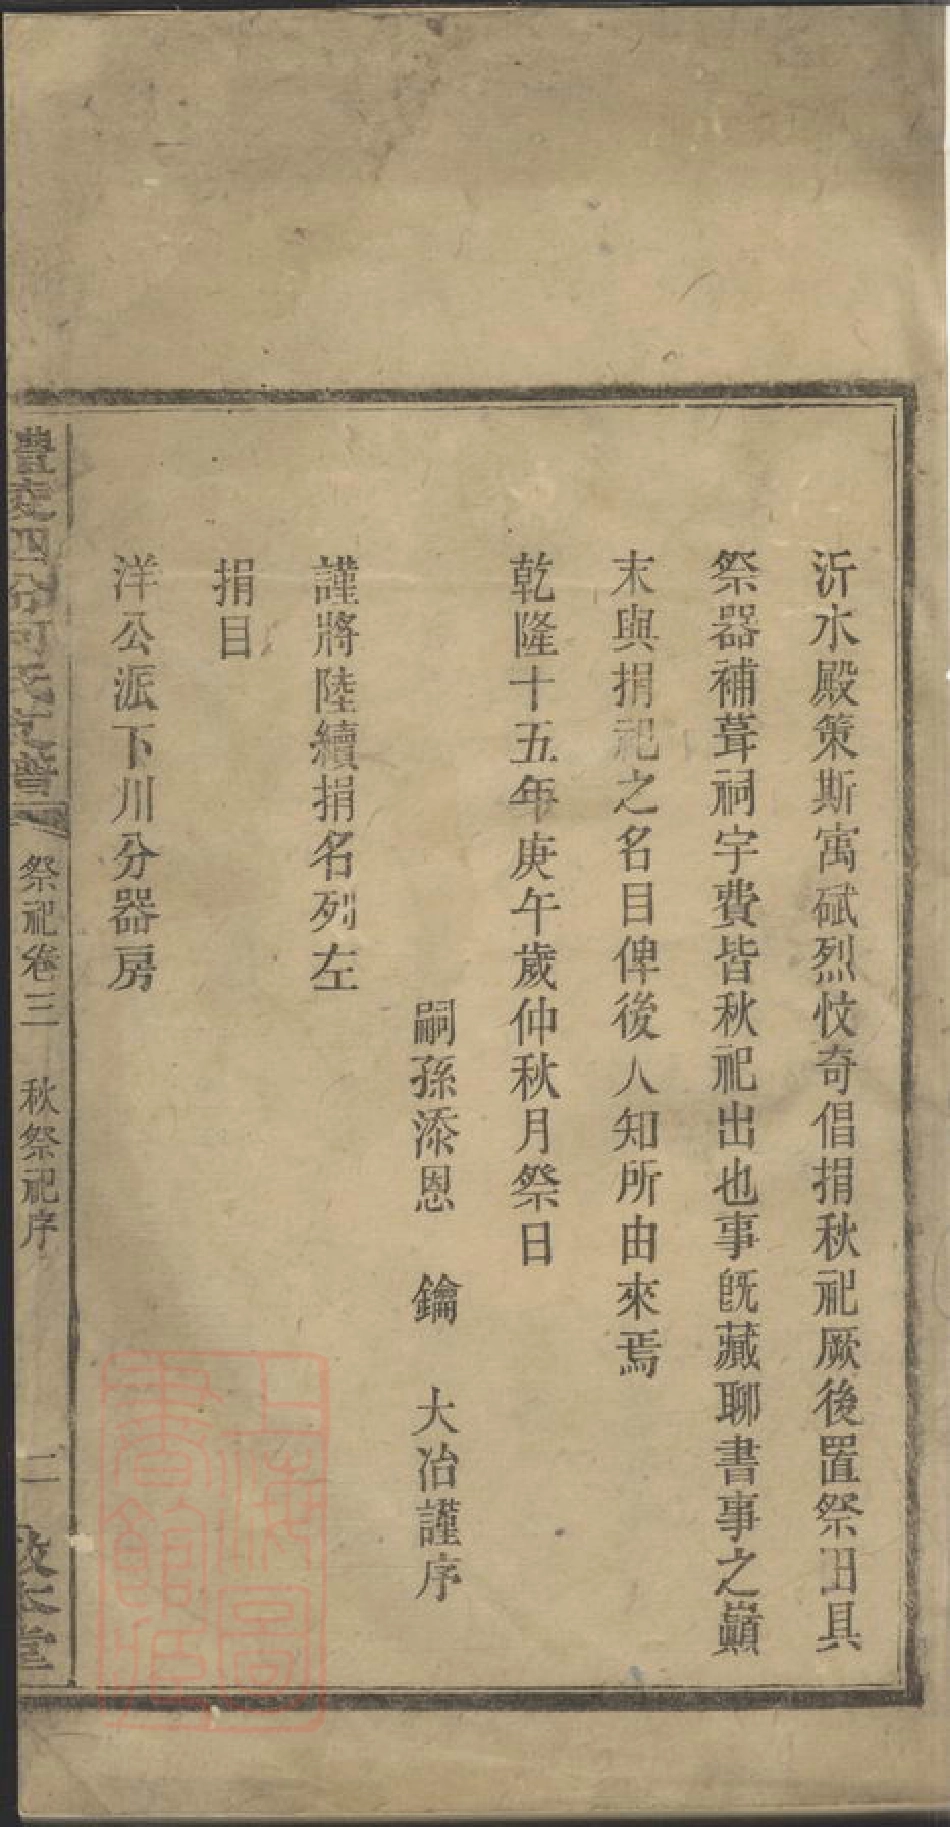 沂水殿策斯寓碔烈忟奇倡捐秋祀厥後置祭田具
祭器補葺祠宇費皆秋祀出也事旣藏聊書事之巔
末與捐祀之名目俾後人知所由來焉
乾隆十五年庚午歲仲秋月祭日
嗣孫添恩 鑰 大冶謹序
謹將陸續捐名列左
捐目
洋公派下川分器房
四分何氏支譜 祭祀卷三 秋祭祀序 二 敬本堂
上海圖書館藏